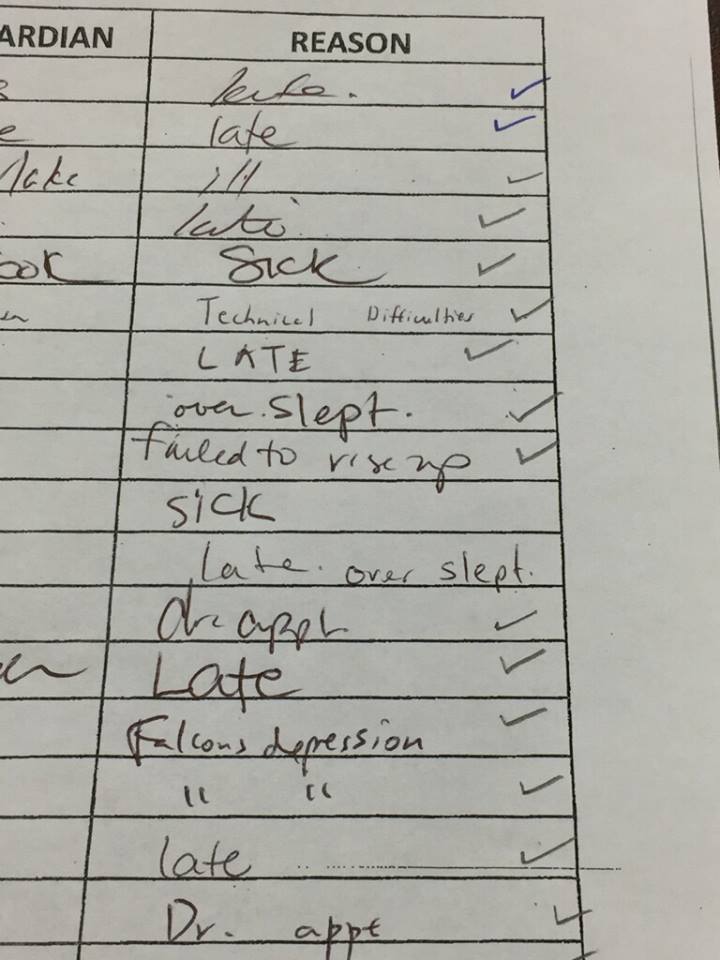 ARDIAN REASON
late.
e late
Make ill
late
ook Sick
en Technical Difficulties
LATE
over.slept.
failed to rise up
SiCK
Late. over slept.
dr. appt
en Late
Falcons depression
" "
late
Dr. appt